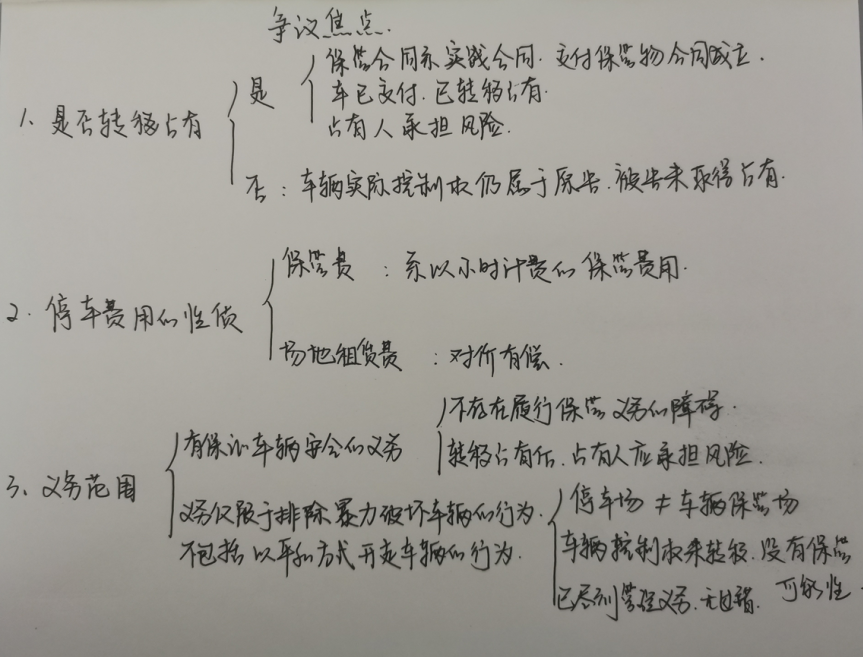 争议焦点.
1、是否转移占有
是
保管合同系实践合同. 交付保管物合同成立.
车已交付. 已转移占有.
占有人承担风险.
否：车辆实际控制权仍属于原告. 被告未取得占有.
2. 停车费用的性质
保管费：系以小时计费的保管费用.
场地租赁费：对价有偿.
3、义务范围
有保证车辆安全的义务
不存在履行保管义务的障碍.
转移占有后. 占有人应承担风险.
义务仅限于排除暴力破坏车辆的行为.
不包括以平和方式开走车辆的行为.
停车场 ≠ 车辆保管场
车辆控制权未转移. 没有保管
可能性.
已尽到管理义务. 无过错.